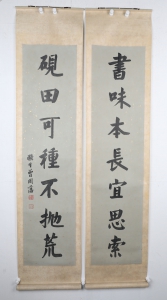 書味本長宜思索
硯田可種不拋荒
曾國藩